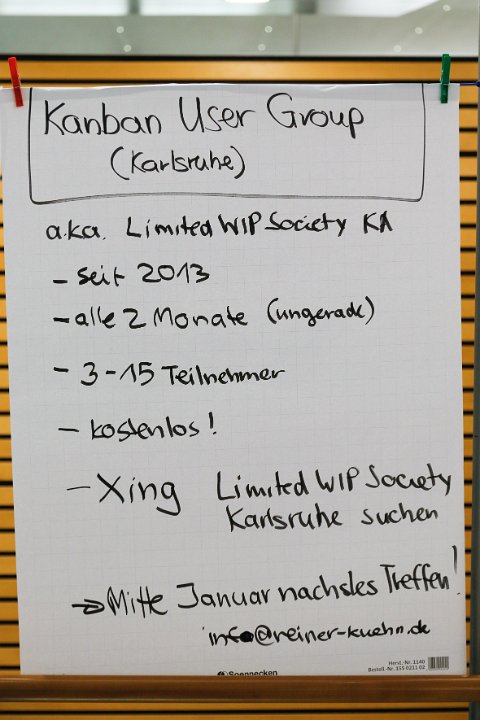 Kanban User Group
(Karlsruhe)
a.k.a. Limited WIP Society KA
- seit 2013
- alle 2 Monate (ungerade)
- 3-15 Teilnehmer
- kostenlos!
- Xing Limited WIP Society
Karlsruhe suchen
→ Mitte Januar nächstes Treffen!
info@reiner-kuehn.de
Soennecken
Herst.-Nr. 1140
Bestell.-Nr. 155 0211 02